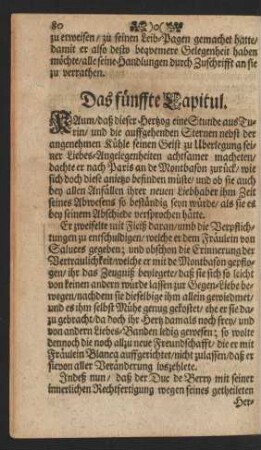 80
zu erweisen/ zu seinen Leib-Pagen gemachet hätte/
damit er also desto beqvemere Gelegenheit haben
möchte/ alle seine Handlungen durch Zuschrifft an sie
zu verrathen.
Das fünffte Capitul.
KAum/ daß dieser Hertzog eine Stunde aus Tu-
rin/ und die auffgehenden Sternen nebst der
angenehmen Kühle seinen Geist zu Uberlegung sei-
ner Liebes-Angelegenheiten achtsamer macheten/
dachte er nach Paris an de Montbason zurück/ wie
sich doch diese anietzo befinden müste/ und ob sie auch
bey allen Anfällen ihrer neuen Liebhaber ihm Zeit
seines Abwesens so beständig seyn würde/ als sie es
bey seinem Abschiede versprochen hätte.
Er zweifelte mit Fleiß daran/ umb die Verpflich-
tungen zu entschuldigen/ welche er dem Fräulein von
Saluces gegeben; und obschon die Erinnerung der
Vertrauligkeit/ welche er mit de Montbason gepflo-
gen/ ihr das Zeugnüß beylegete/ daß sie sich so leicht
von keinen andern würde lassen zur Gegen-Liebe be-
wogen/ nachdem sie dieselbige ihm allein gewiedmet/
und es ihm selbst Mühe genug gekostet/ ehe er sie da-
zu gebracht/ da doch ihr Hertz damals noch frey/ und
von andern Liebes-Banden ledig gewesen; so wolte
dennoch die noch allzu neue Freundschafft/ die er mit
Fräulein Blancq auffgerichtet/ nicht zulassen/ daß er
sie von aller Veränderung loszehlete.
Indeß nun/ daß der Duc de Berry mit seiner
innerlichen Rechtfertigung wegen seines getheilten
Her-